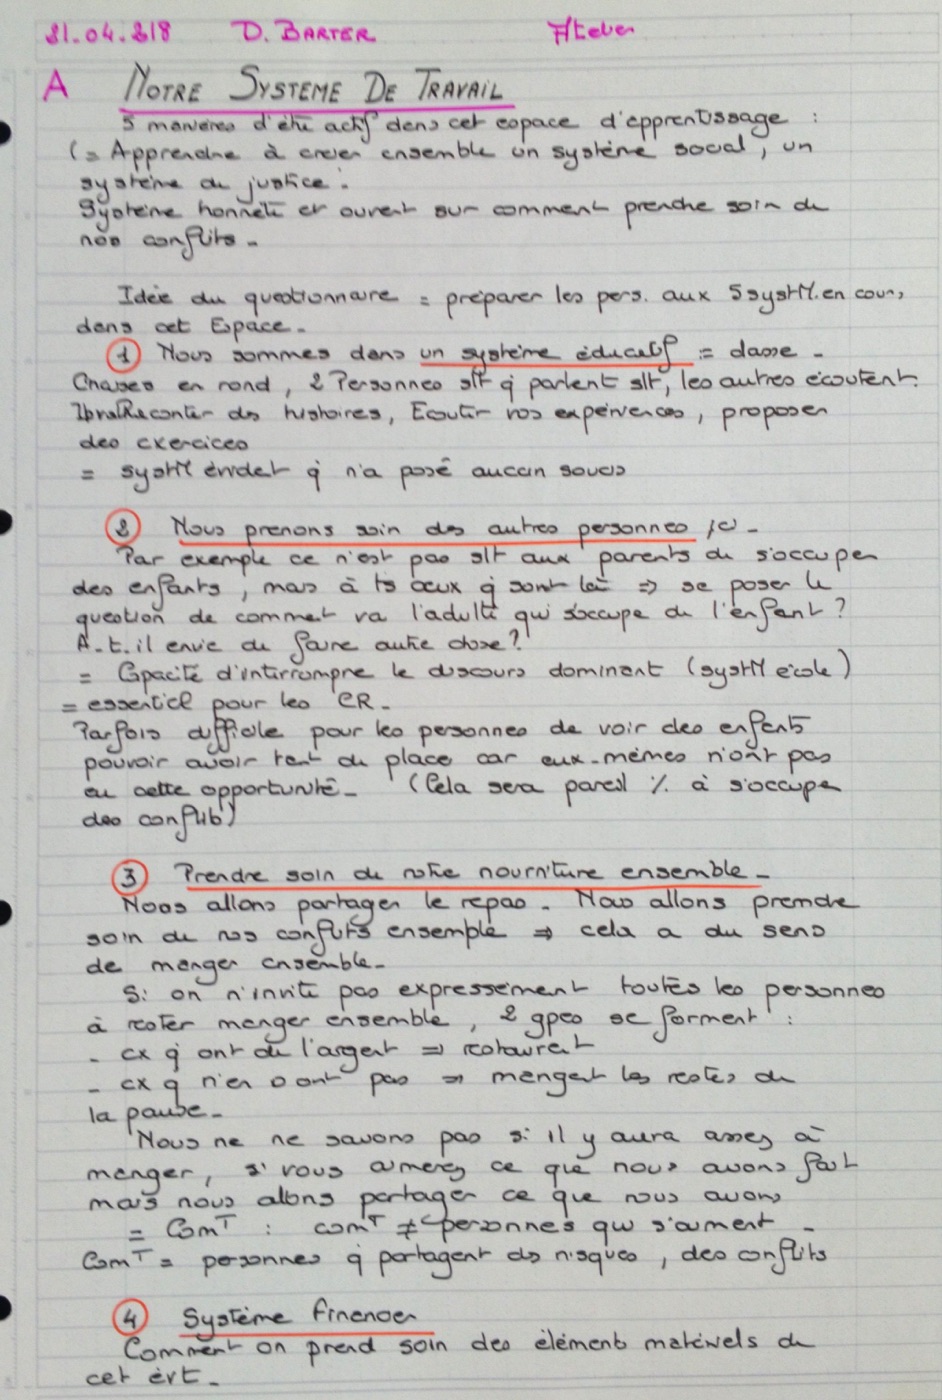 21.04.218 D. BARTER Atelier
A NOTRE SYSTEME DE TRAVAIL
5 manières d'être actif dans cet espace d'apprentissage :
(= Apprendre à créer ensemble un système social, un
système de justice.
Système honnête et ouvert sur comment prendre soin de
nos conflits -
Idée du questionnaire = préparer les pers. aux 5 systM. en cours
dans cet Espace.
1 Nous sommes dans un système éducatif = classe -
Chaises en rond, 2 Personnes slt q parlent slt, les autres écoutent.
Raconter des histoires, Ecouter vos expériences, proposer
des exercices
= systM évident q n'a posé aucun soucis
2 Nous prenons soin des autres personnes ici -
Par exemple ce n'est pas slt aux parents de s'occuper
des enfants, mais à ts ceux q sont là => se poser la
question de comment va l'adulte qui s'occupe de l'enfant ?
A-t-il envie de faire autre chose ?
= Capacité d'interrompre le discours dominant (systM école)
= essentiel pour les CR -
Parfois difficile pour les personnes de voir des enfants
pouvoir avoir tant de place car eux-mêmes n'ont pas
eu cette opportunité - (Cela sera pareil % à s'occuper
des conflits)
3 Prendre soin de notre nourriture ensemble -
Nous allons partager le repas. Nous allons prendre
soin de nos conflits ensemble => cela a du sens
de manger ensemble -
Si on n'invite pas expressément toutes les personnes
à rester manger ensemble, 2 gpes se forment :
- cx q ont de l'argent => restaurant
- cx q n'en ont pas => mangent les restes de
la pause -
Nous ne ne savons pas si il y aura assez à
manger, si vous aimerez ce que nous avons fait
mais nous allons partager ce que nous avons
= ComT : comT ≠ personnes qui s'aiment -
ComT = personnes q partagent des risques, des conflits
4 Système financier
Comment on prend soin des éléments matériels de
cet évt -